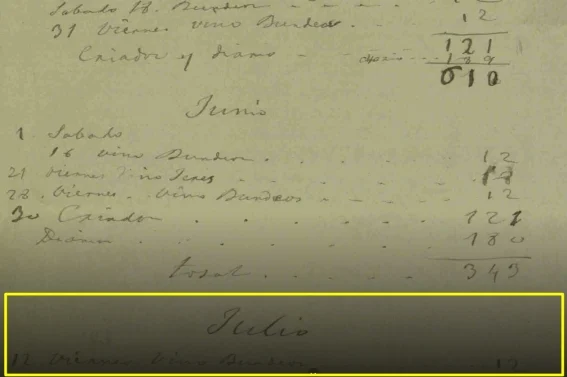 Sabado 18. Burdeos
31 Viernes vino Burdeos. 12
121
Criador y diario 189
610
Junio
1. Sabado
16 vino Burdeos. 12
21 Viernes vino Jerez
28. Viernes. Vino Burdeos 12
30 Criador 121
Diario 180
total 345
Julio
12 Viernes Vino Burdeos 12